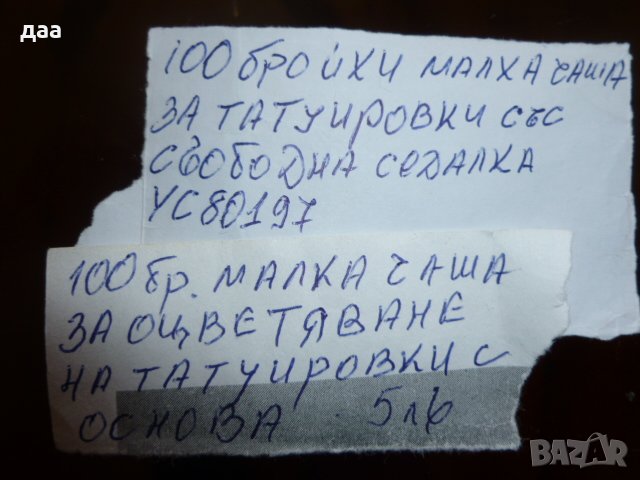 даа
100 бройхи малха чаша
за татуировки със
свободна седалка
YC80197
100 бр. малка чаша
за оцветяване
на татуировки с
основа 5лв
BAZAR